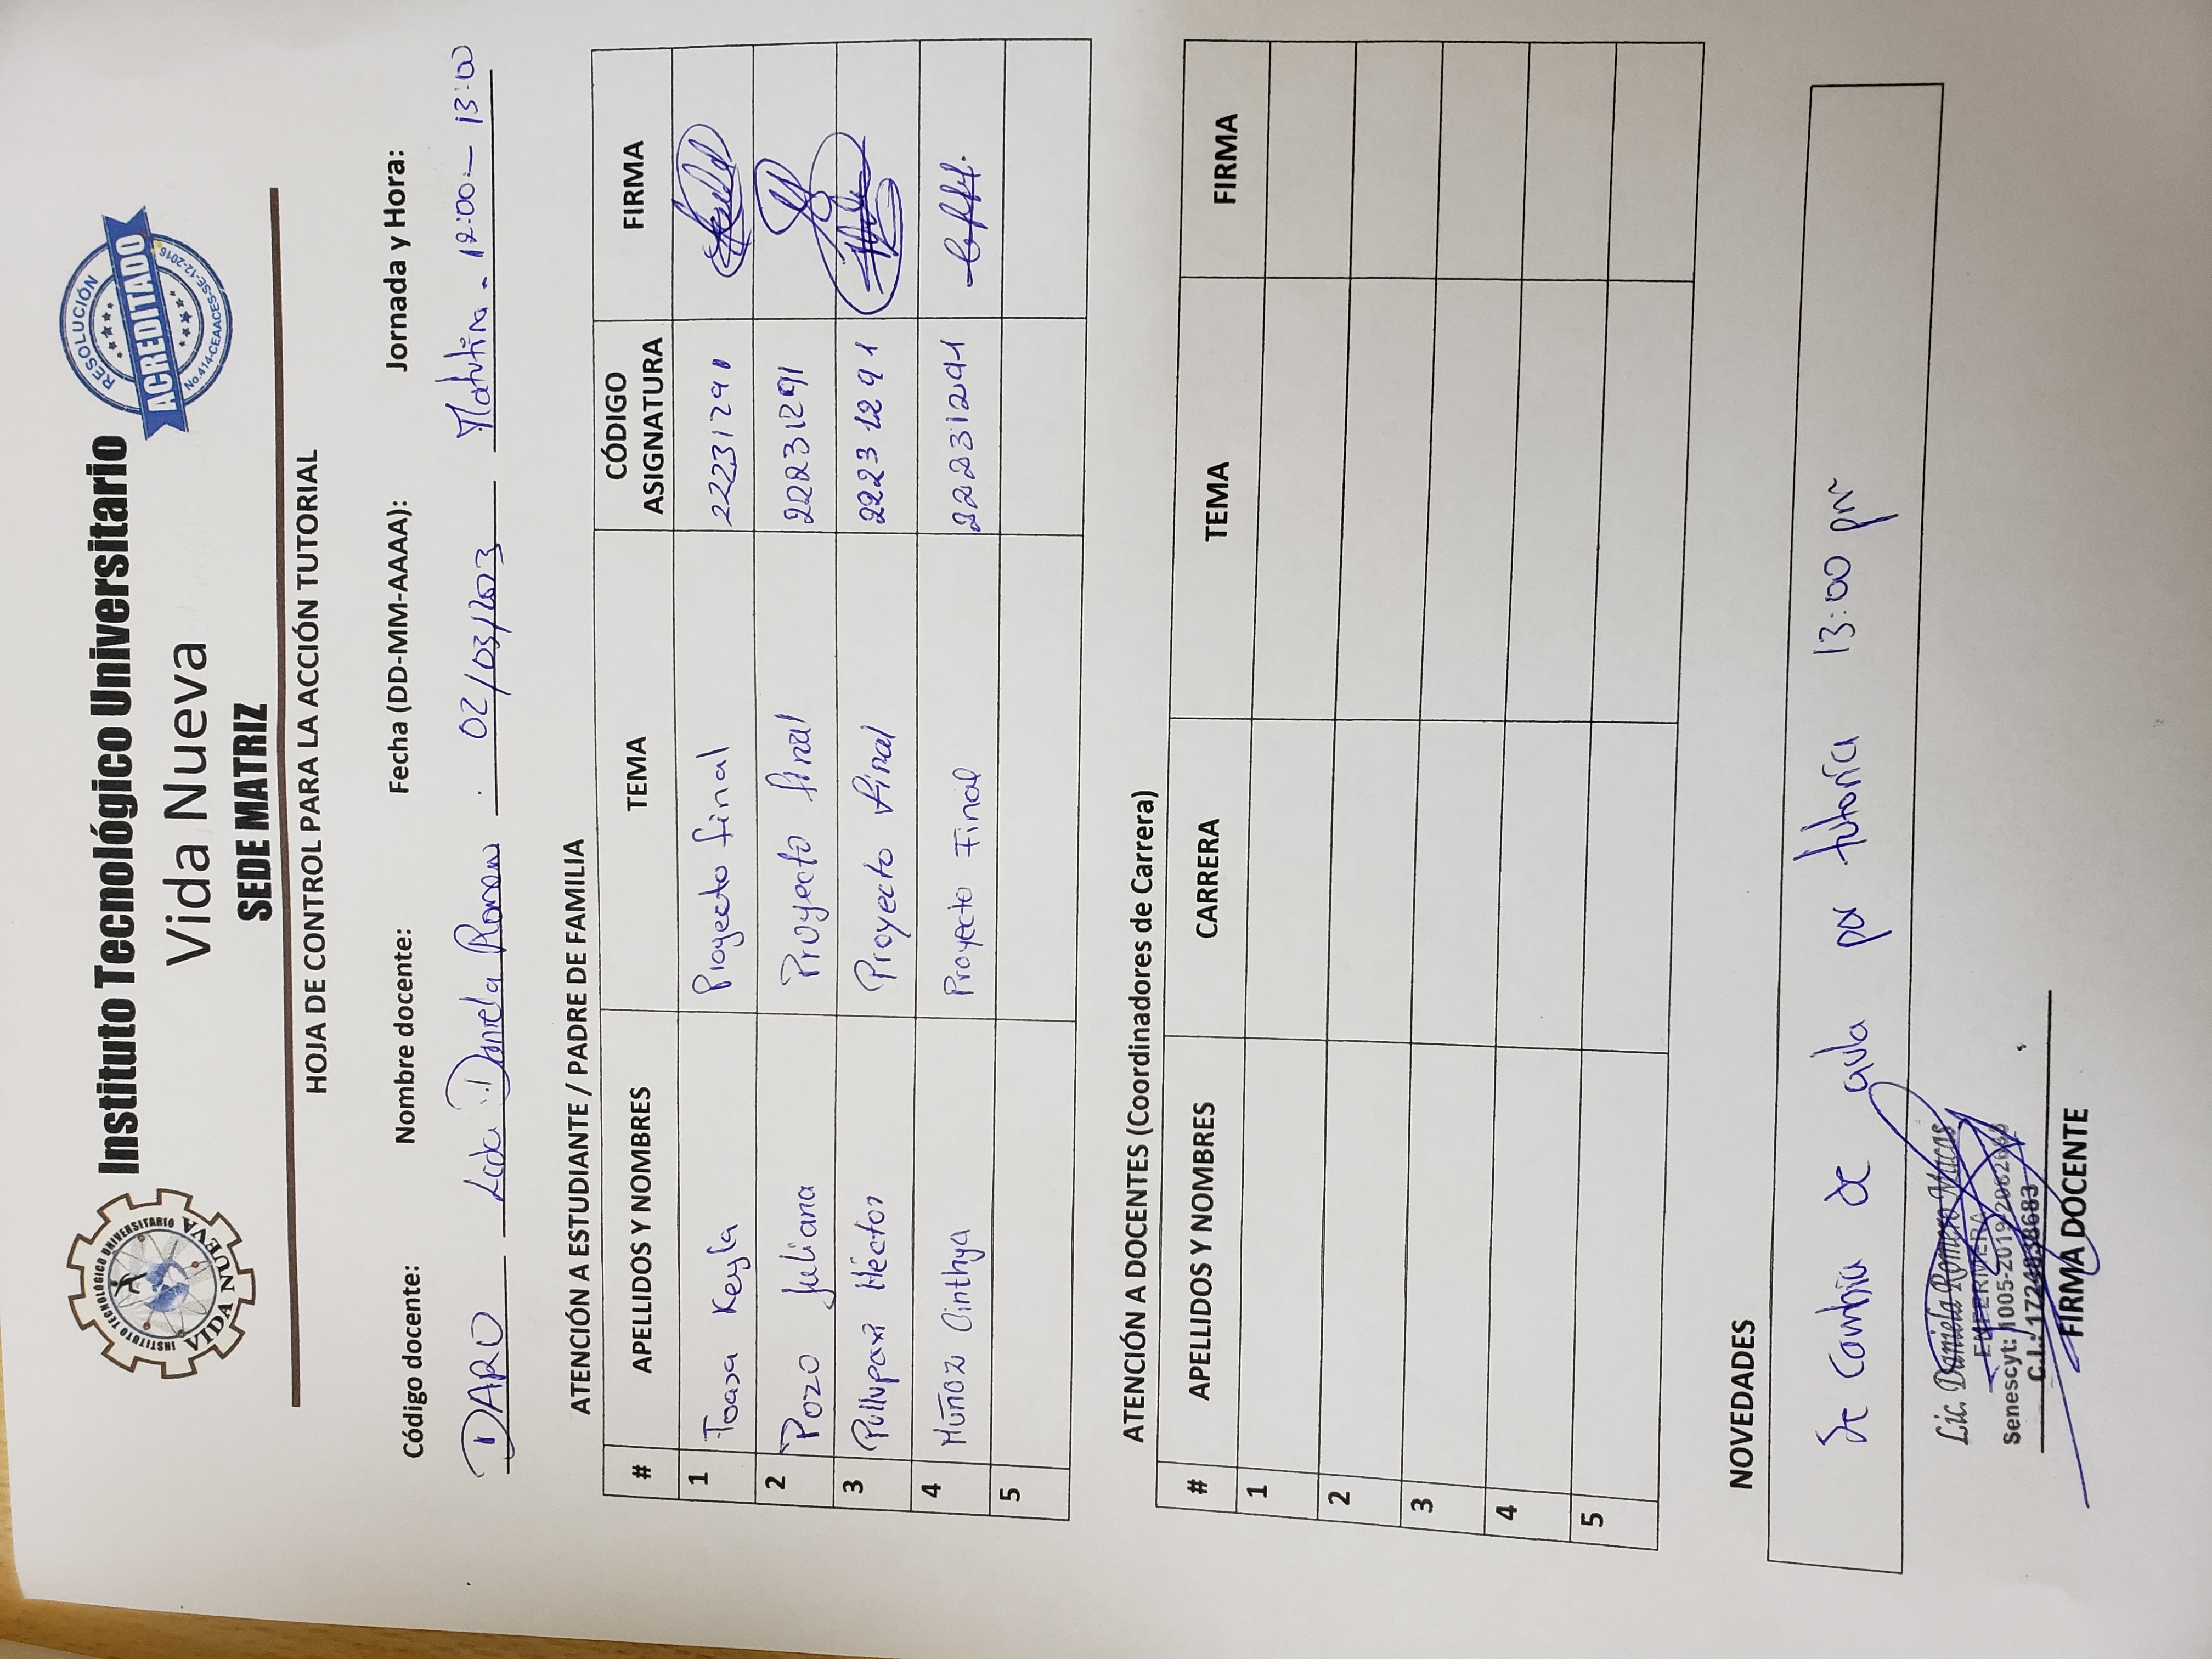 INSTITUTO TECNOLÓGICO UNIVERSITARIO
VIDA NUEVA
Instituto Tecnológico Universitario
Vida Nueva
SEDE MATRIZ
RESOLUCIÓN
ACREDITADO
No.414-CEAACES-SE-12-2016
HOJA DE CONTROL PARA LA ACCIÓN TUTORIAL
Código docente: Nombre docente: Fecha (DD-MM-AAAA): Jornada y Hora:
DARO Lcda Daniela Romero 02/03/2023 Matutina - 12:00 - 13:00
ATENCIÓN A ESTUDIANTE / PADRE DE FAMILIA
# APELLIDOS Y NOMBRES TEMA CÓDIGO ASIGNATURA FIRMA
1 Toasa Keyla Proyecto final 22231291
2 Pozo Juliana Proyecto final 22231291
3 Pullupaxi Héctor Proyecto final 22231291
4 Muñoz Cinthya Proyecto Final 22231291
5
ATENCIÓN A DOCENTES (Coordinadores de Carrera)
# APELLIDOS Y NOMBRES CARRERA TEMA FIRMA
1
2
3
4
5
NOVEDADES
Se cambia de aula por tutoría 13:00 pm
Lic. Daniela Romero Macas
ENFERMERA
Senescyt: 1005-2019-
C.I.:
FIRMA DOCENTE